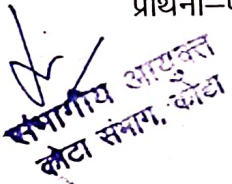 प्रार्थना–
संभागीय आयुक्त
कोटा संभाग, कोटा